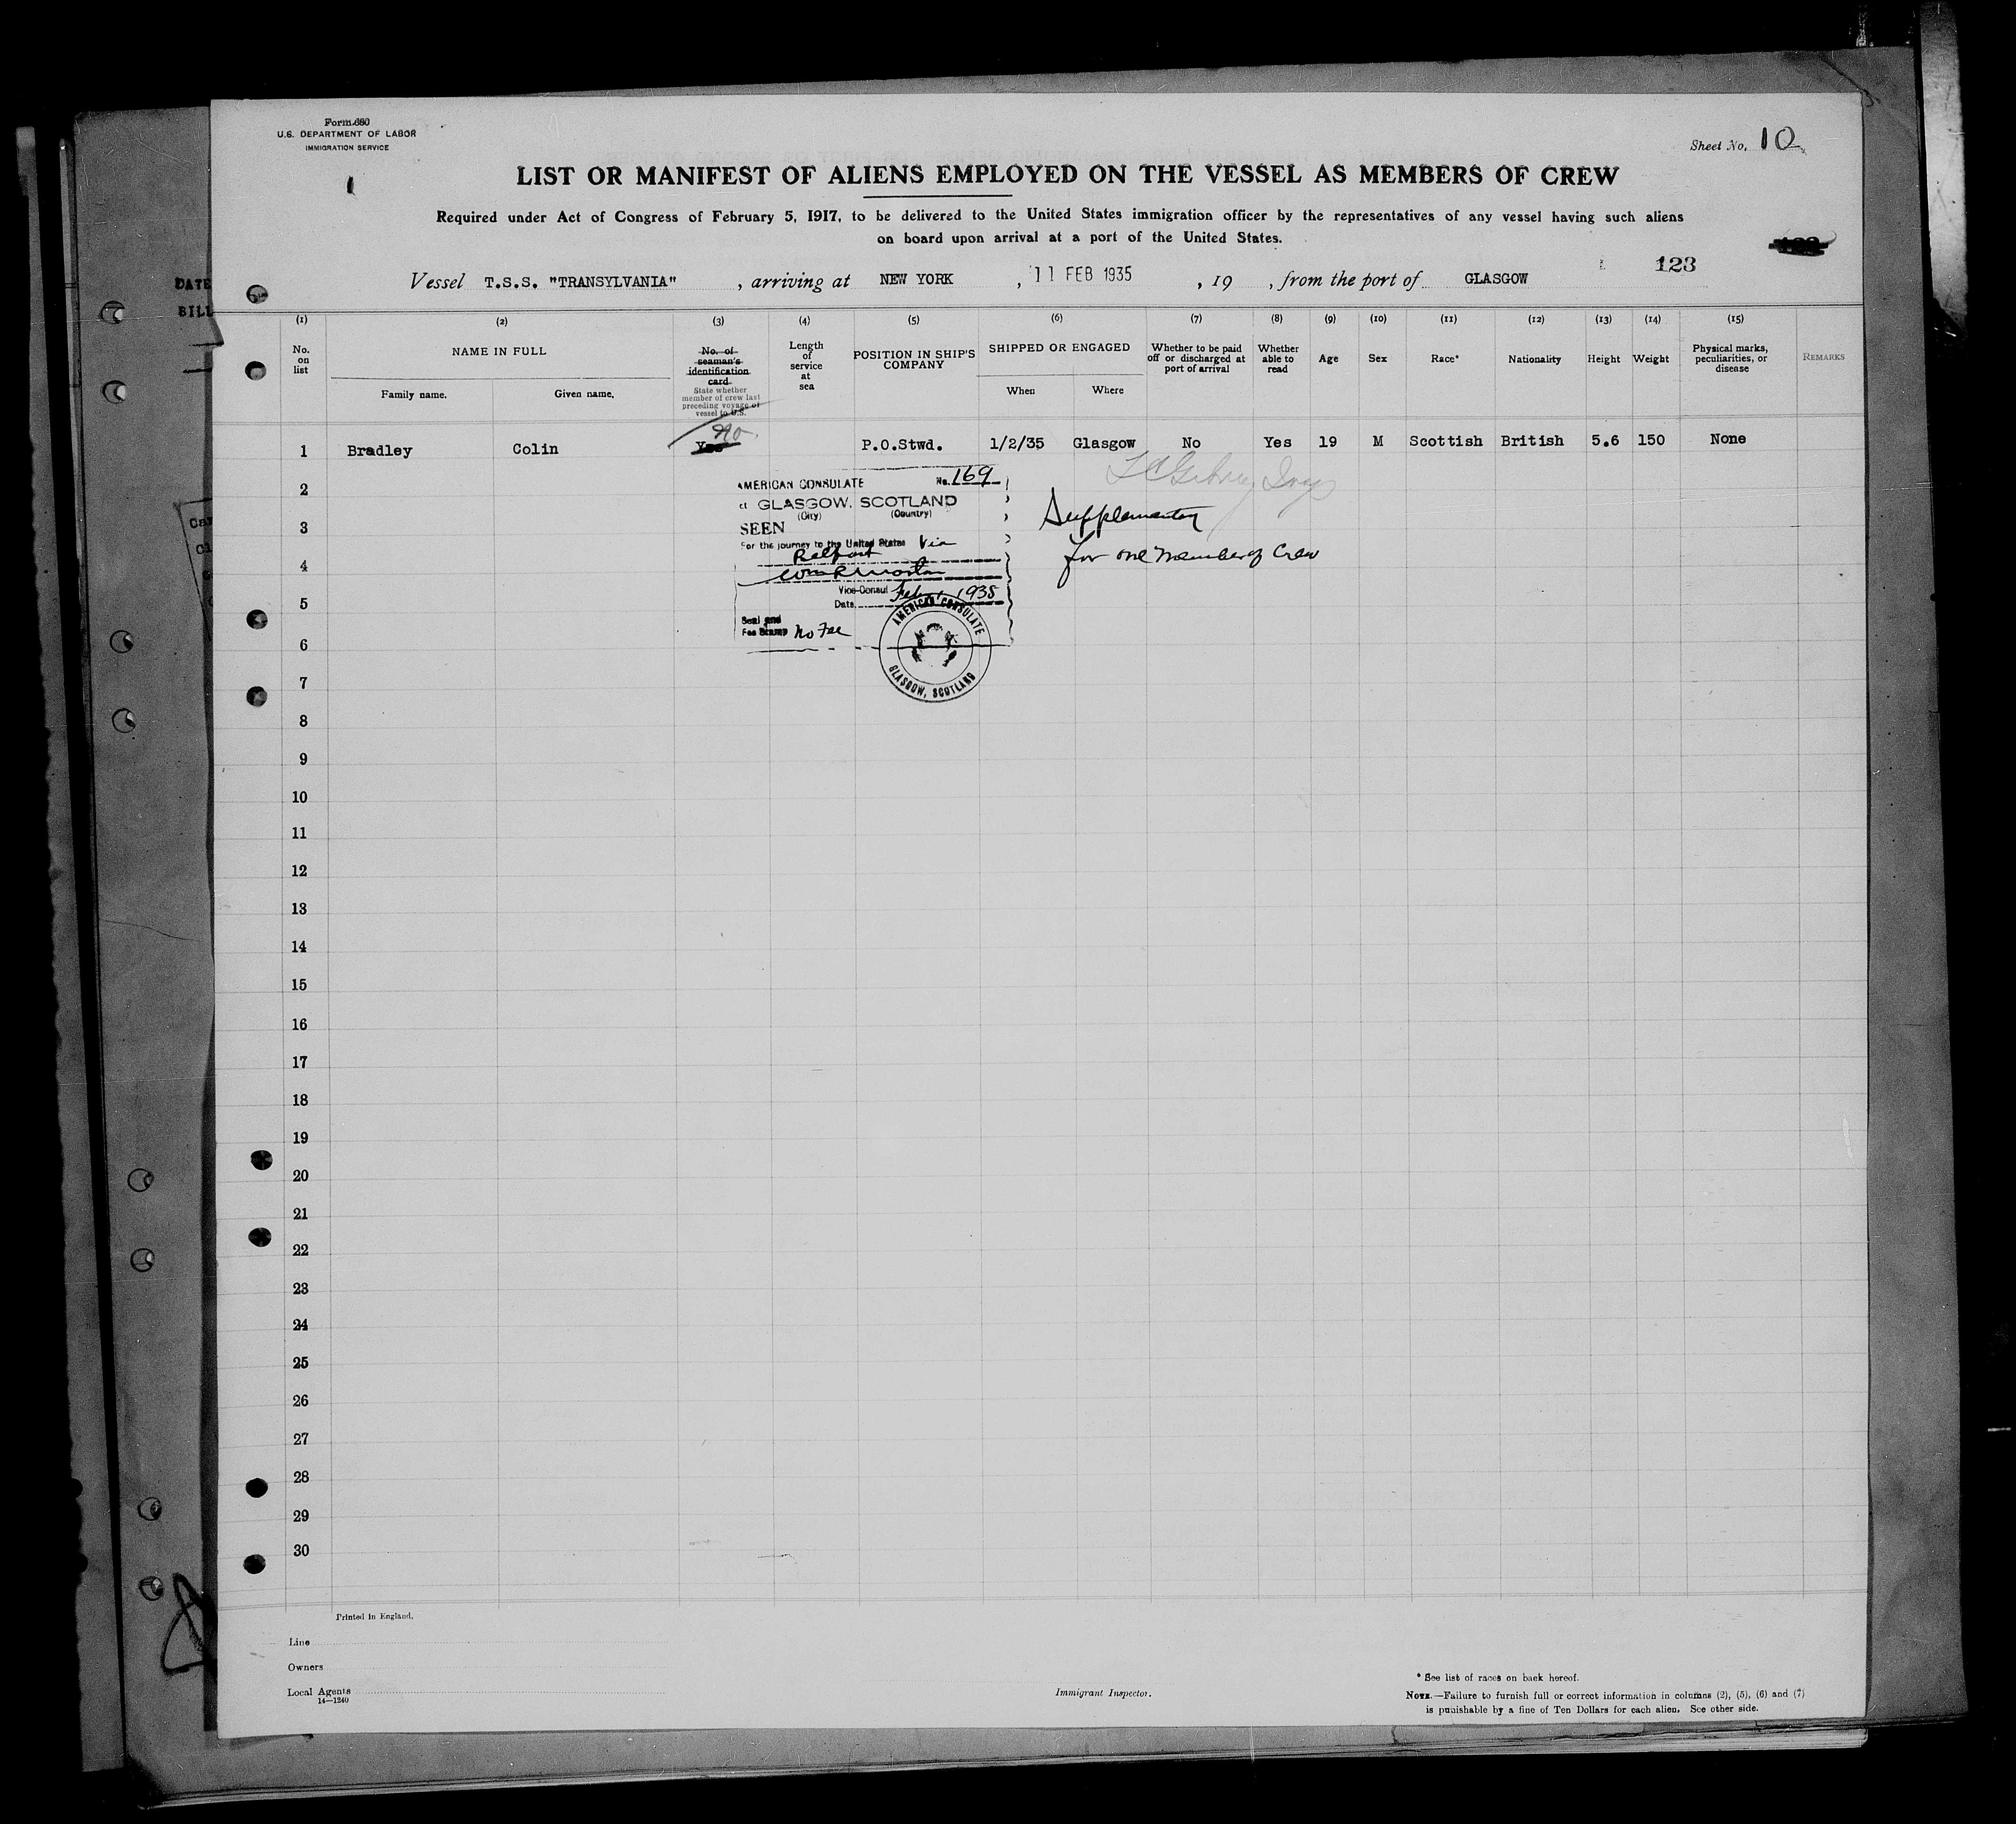 Form 680
U.S. DEPARTMENT OF LABOR
IMMIGRATION SERVICE
Sheet No. 10
1
LIST OR MANIFEST OF ALIENS EMPLOYED ON THE VESSEL AS MEMBERS OF CREW
Required under Act of Congress of February 5, 1917, to be delivered to the United States immigration officer by the representatives of any vessel having such aliens
on board upon arrival at a port of the United States.
123
Vessel T.S.S. "TRANSYLVANIA", arriving at NEW YORK, 11 FEB 1935, 19 , from the port of GLASGOW
(1) (2) (3) (4) (5) (6) (7) (8) (9) (10) (11) (12) (13) (14) (15)
No. on list
NAME IN FULL
Family name. Given name.
No. of seaman's identification card
State whether member of crew last preceding voyage of vessel to U.S.
Length of service at sea
POSITION IN SHIP'S COMPANY
SHIPPED OR ENGAGED
When Where
Whether to be paid off or discharged at port of arrival
Whether able to read
Age
Sex
Race*
Nationality
Height
Weight
Physical marks, peculiarities, or disease
REMARKS
1 Bradley Colin Yes No P.O.Stwd. 1/2/35 Glasgow No Yes 19 M Scottish British 5.6 150 None
AMERICAN CONSULATE No. 169
at GLASGOW, SCOTLAND
(City) (Country)
SEEN
For the journey to the United States Via
Belfast
Vice-Consul
Date Feb 1, 1935
Seal and
Fee Stamp No Fee
AMERICAN CONSULATE
GLASGOW, SCOTLAND
Supplementary
for one member of Crew
2
3
4
5
6
7
8
9
10
11
12
13
14
15
16
17
18
19
20
21
22
23
24
25
26
27
28
29
30
Printed in England.
Line
Owners
Local Agents
14—1240
Immigrant Inspector.
* See list of races on back hereof.
NOTE.—Failure to furnish full or correct information in columns (2), (5), (6) and (7)
is punishable by a fine of Ten Dollars for each alien. See other side.
DATE
BILL